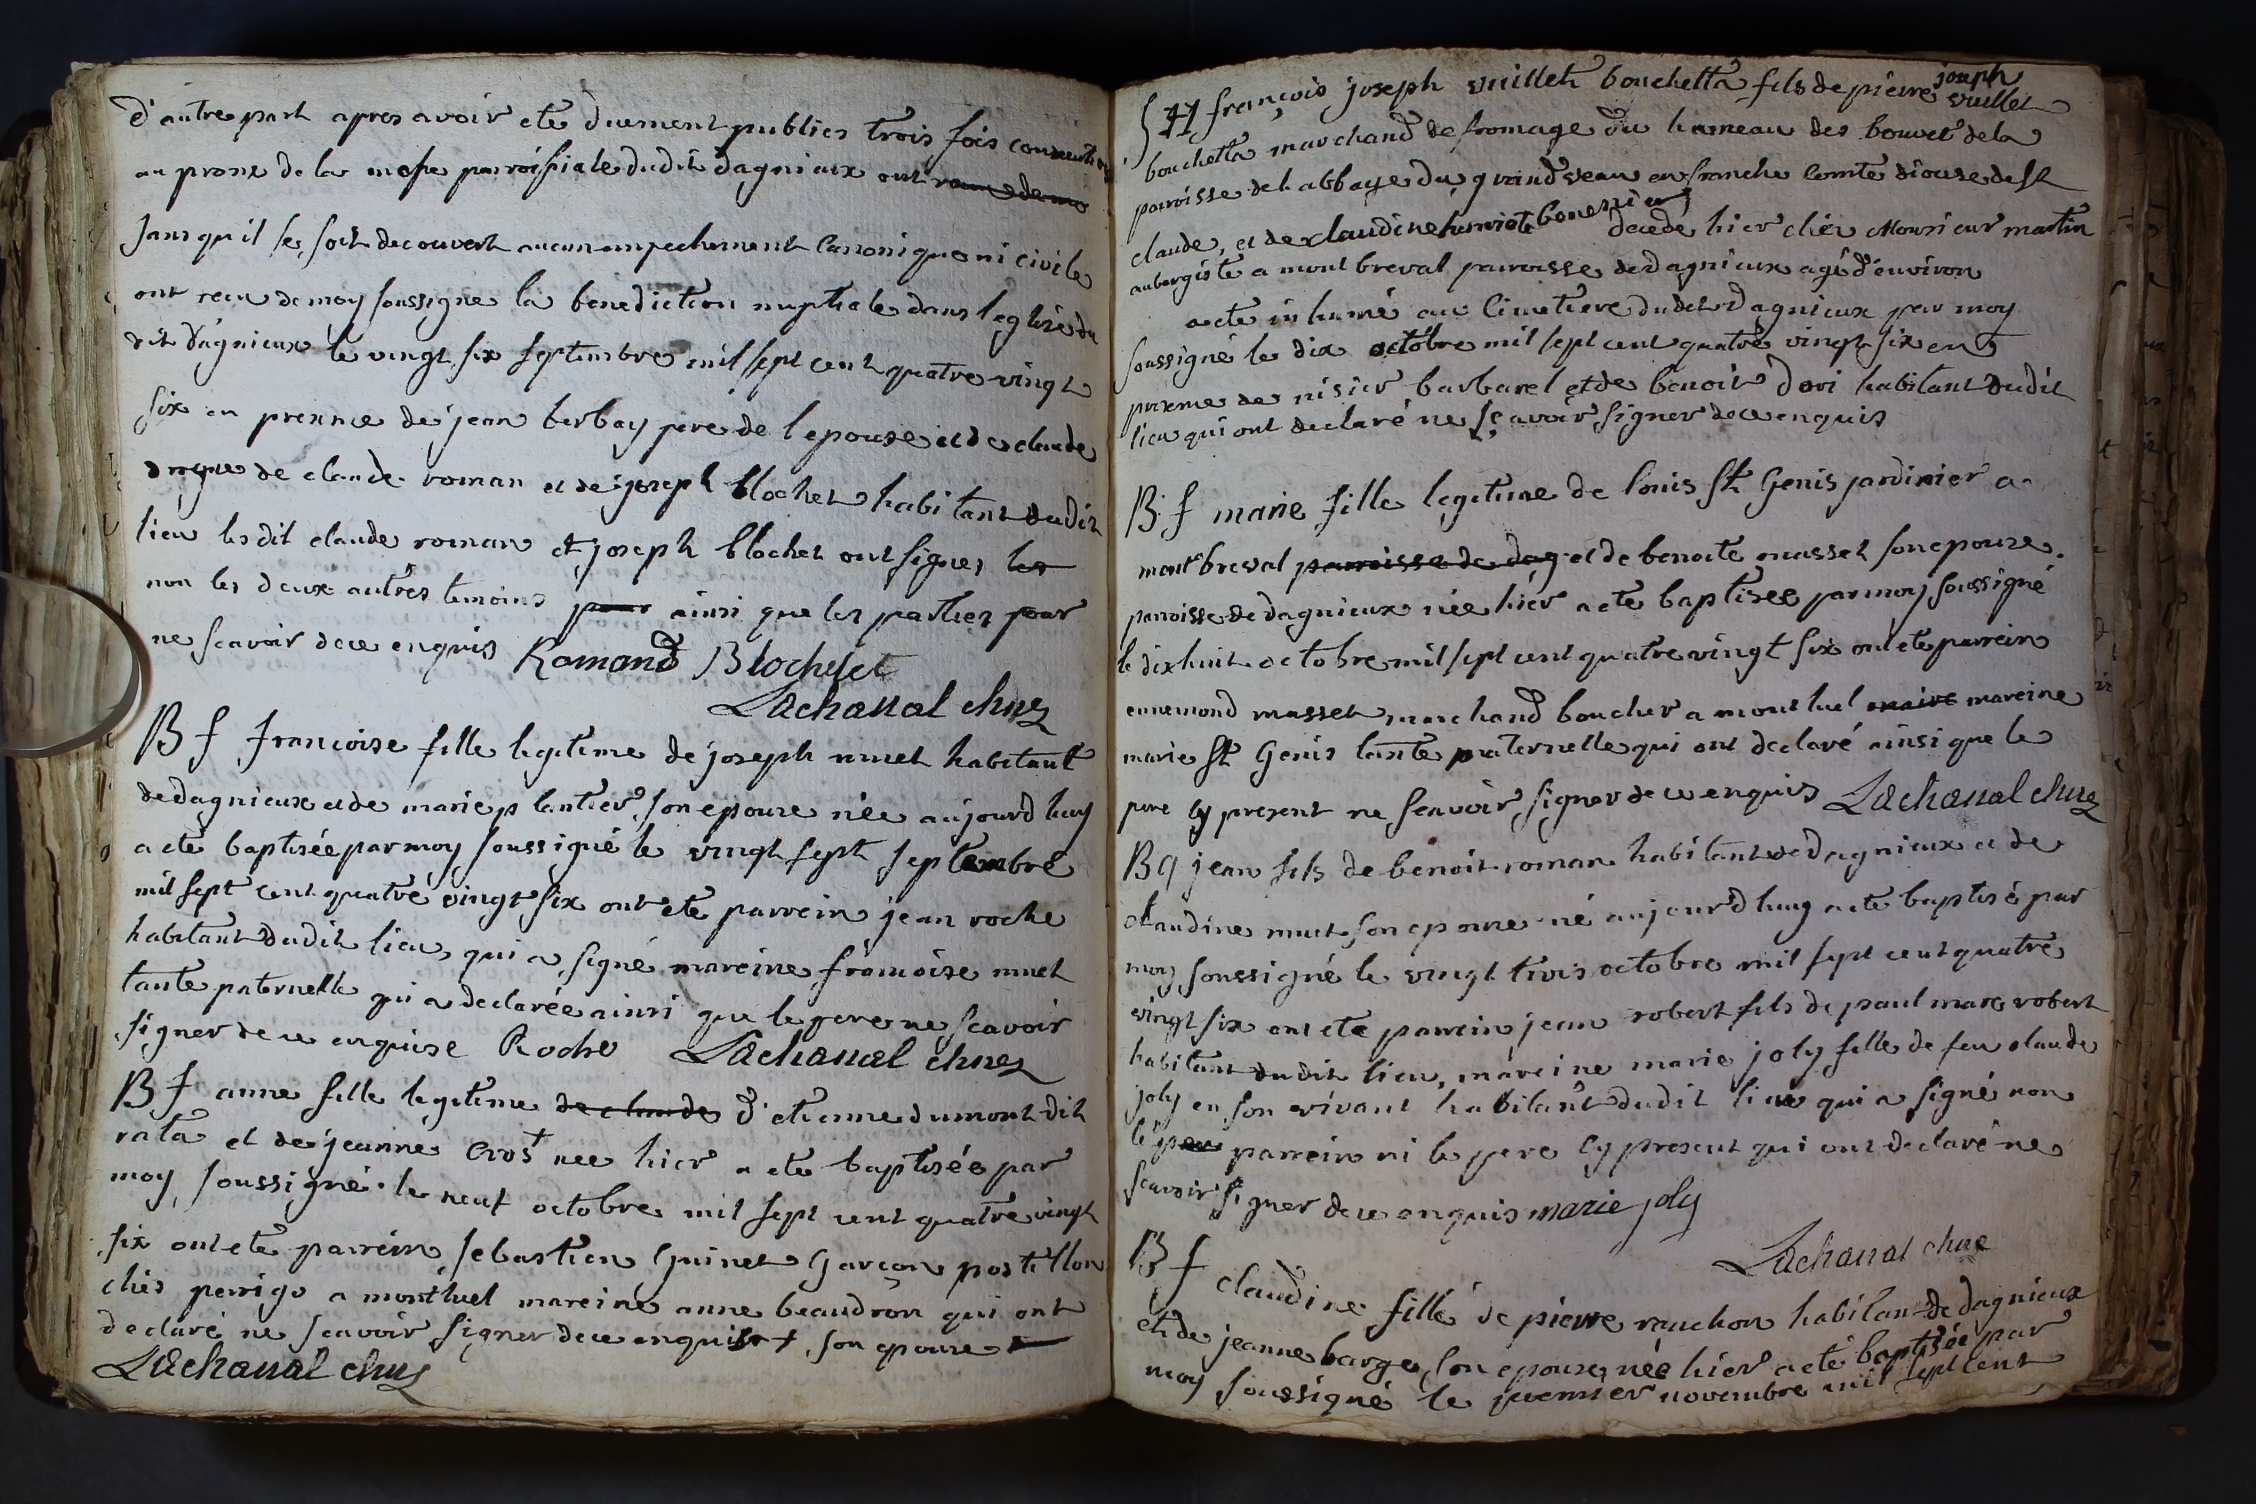 d'autre part apres avoir ete duement publies trois fois consecutives
au prone de la messe parroissiale dudit dagnieux ont
sans qu'il se soit decouvert aucun empechement canonique ni civile
ont recu de moy soussigne la benediction nuptiale dans l'eglise du
dit dagnieux le vingt six septembre mil sept cent quatre vingt
six en presence de jean berbay pere de l'epouse et de claude
de claude roman et de joseph blochet habitant dudit
lieu les dit claude roman et joseph blochet ont signes les
non les deux autres temoins pour ainsi que les parties pour
ne scavoir de ce enquis Romand Blochet
Lachanal
B f francoise fille legitime de joseph muet habitant
de dagnieux et de marie plantier son epouse née aujourd huy
a ete baptisée par moy soussigné le vingt sept septembre
mil sept cent quatre vingt six ont ete parrein jean roche
habitant dudit lieu, qui a signé mareine francoise muet
tante paternelle qui a declarée ainsi que le pere ne scavoir
signer de ce enquise Roche Lachanal
B f anne fille legitime de claude d'etienne dumont dit
rata et de jeanne cros + nee hier a ete baptisée par
moy soussigné le neuf octobre mil sept cent quatre vingt
six ont ete parrein sebastien guinet garcon postillon
chés perrigo a montluel mareine anne beaudron qui ont
declaré ne scavoir signer de ce enquis + son epouse
Lachanal
françois joseph vuillet bouchetta fils de pierre joseph vuillet
bouchetta marchand de fromage du hameau des bouvet de la
paroisse de l'abbaye du grandveau en franche comte diocese de st
claude, et de claudine henriote
decede hier chés Monsieur martin
aubergiste a montbreval paroisse de dagnieux agé d'environ
a ete inhumé au cimetiere dudit dagnieux par moy
soussigné le dix octobre mil sept cent quatre vingt six en
presence de nisier barbarel et de benoit dori habitant dudit
lieu qui ont declaré ne sçavoir signer de ce enquis
B. f marie fille legitime de louis st Genis jardinier a
mont breval parroisse de dag et de benoite musset son epouse
parroisse de dagnieux née hier a ete baptisee par moy soussigné
le dix huit octobre mil sept cent quatre vingt six ont ete parrein
ennemond musset marchand boucher a montluel mareine
marie st Genis tante paternelle qui ont declaré ainsi que le
pere cy present ne scavoir signer de ce enquis Lachanal
B g jean fils de benoit roman habitant de dagnieux et de
claudine muet son epouse né aujourd huy a ete baptisé par
moy soussigné le vingt trois octobre mil sept cent quatre
vingt six ont ete parrein jean robert fils de paul marc robert
habitant dudit lieu, mareine marie joly fille de feu claude
joly en son vivant habitant dudit lieu qui a signé non
le parrein ni le pere cy present qui ont declaré ne
scavoir signer de ce enquis marie joly
Lachanal
B f claudine fille de pierre rauchon habitant de dagnieux
et de jeanne barge son epouse née hier a ete baptisée par
moy soussigné le premier novembre mil sept cent